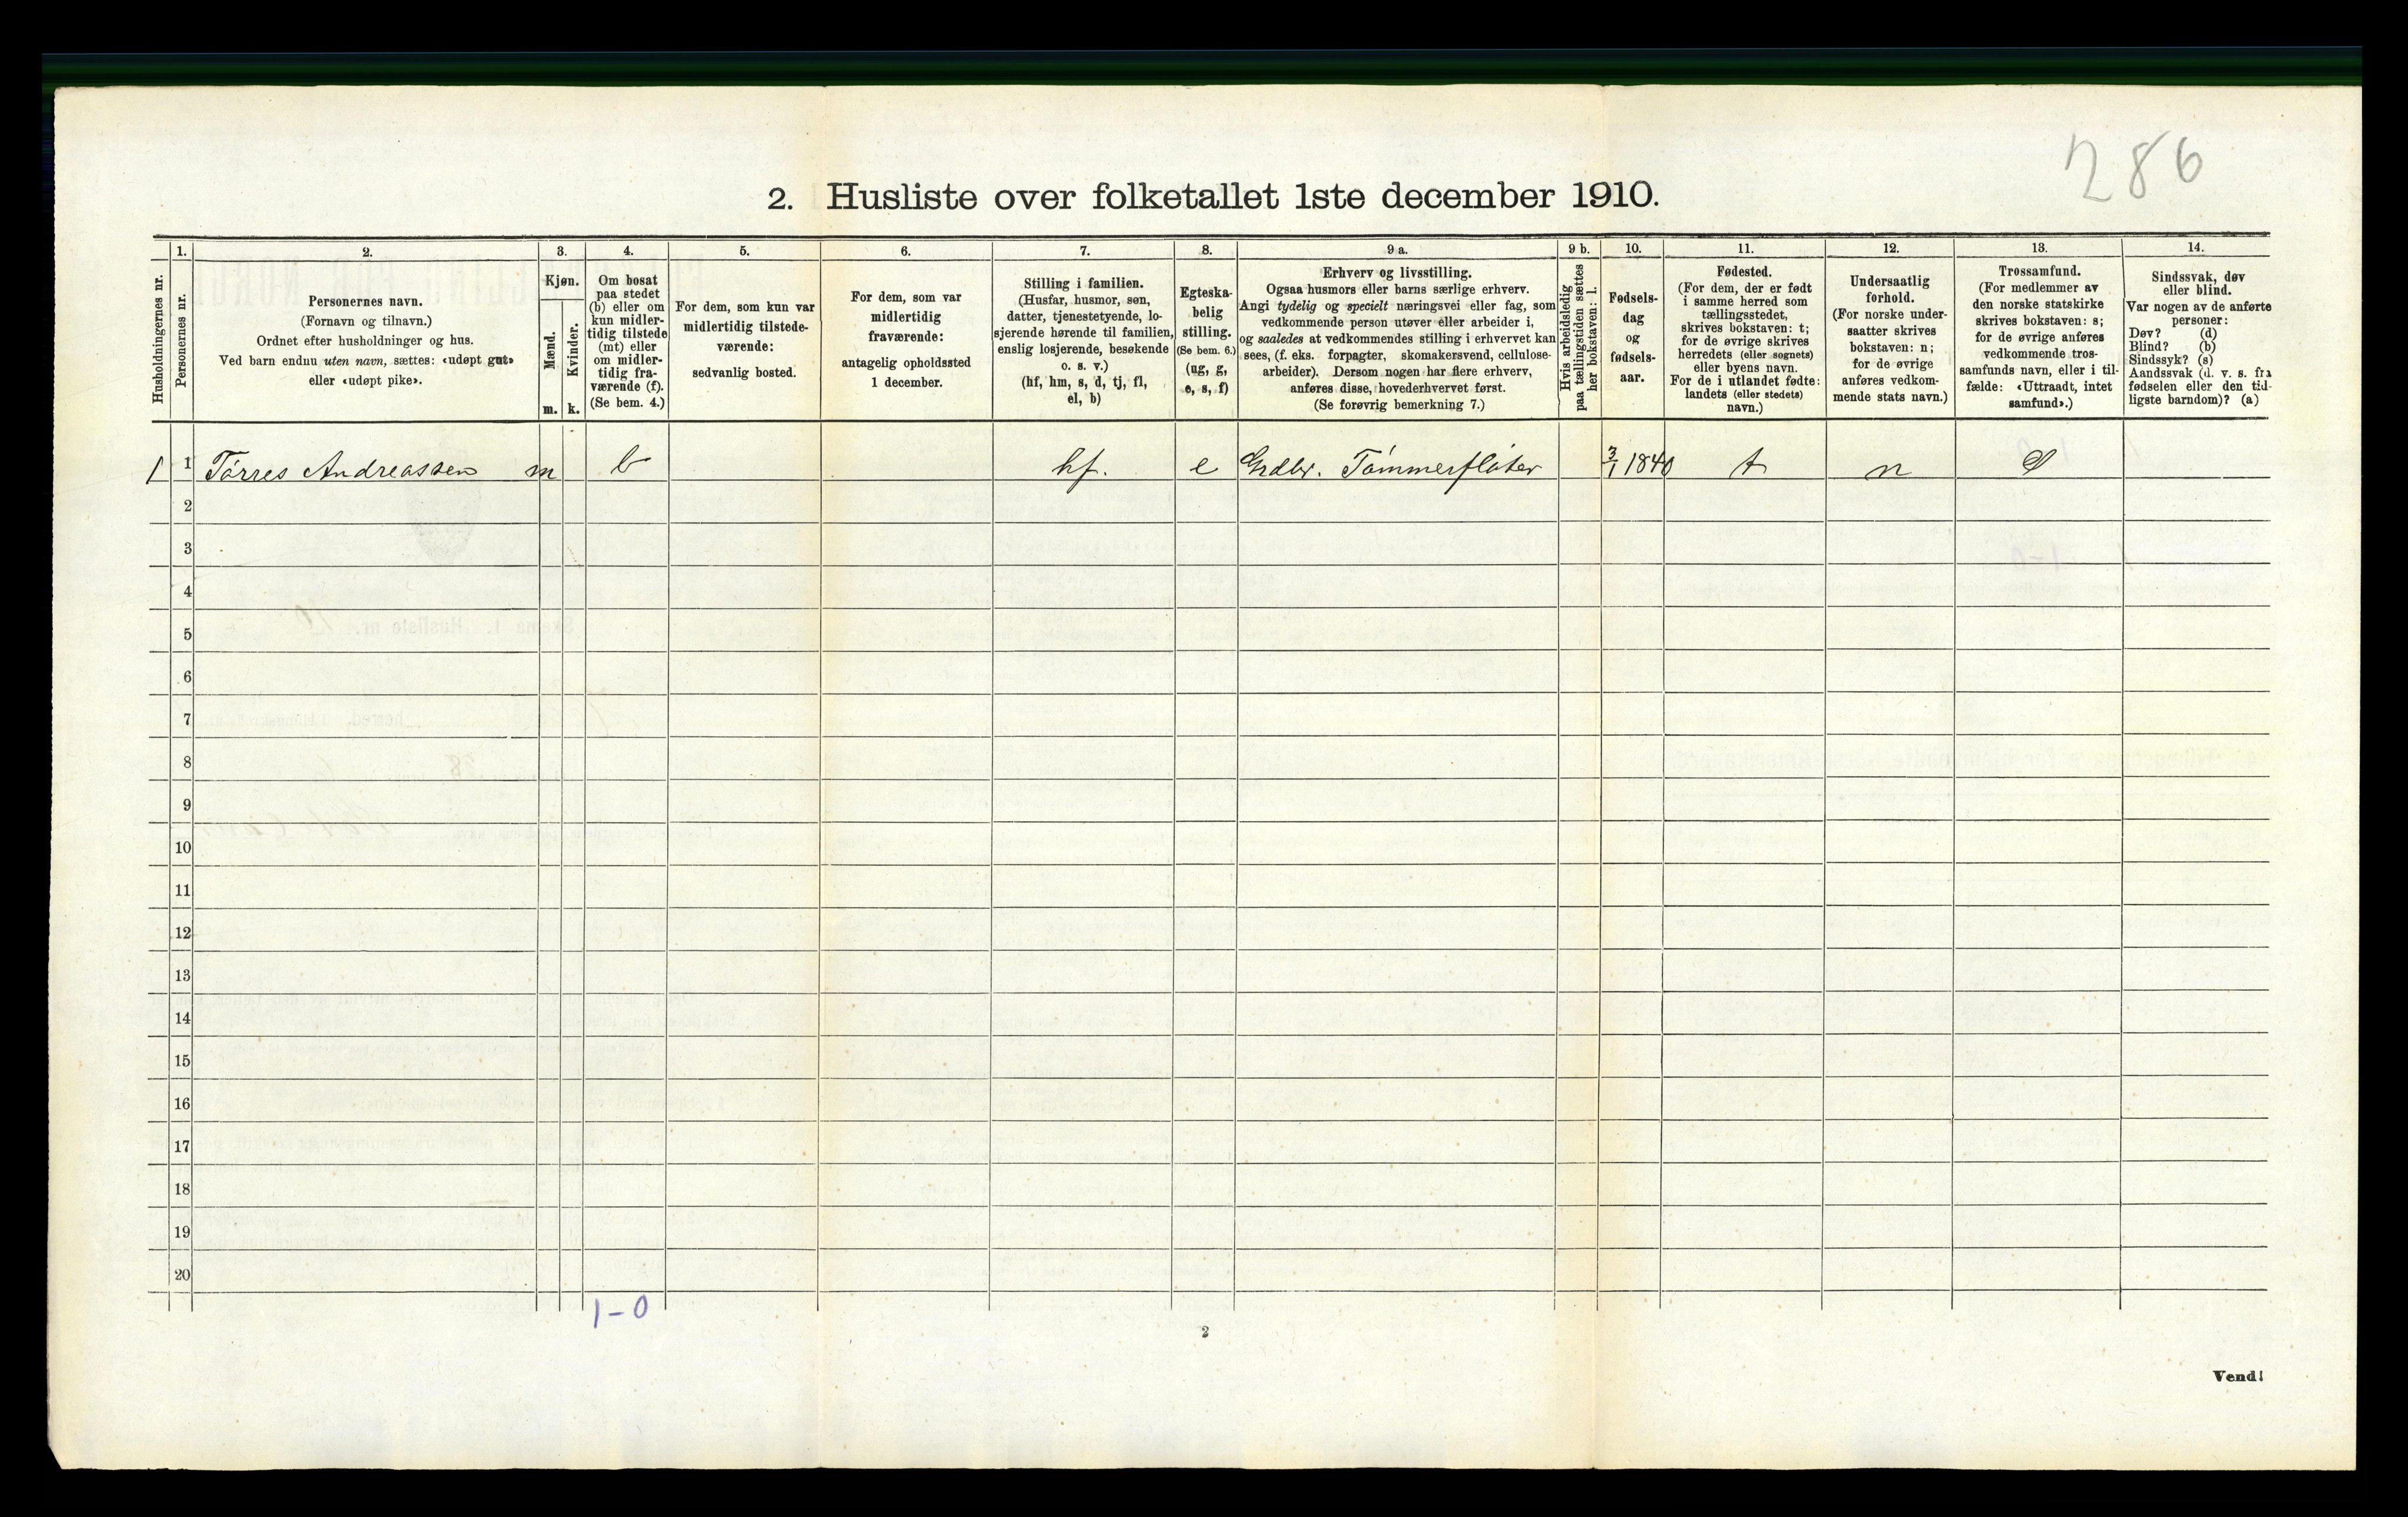 286
2. Husliste over folketallet 1ste december 1910.
Husholdningernes nr.
1.
Personernes nr.
2.
Personernes navn.
(Fornavn og tilnavn.)
Ordnet efter husholdninger og hus.
Ved barn endnu uten navn, sættes: «udøpt gut»
eller «udøpt pike».
3.
Kjøn.
Mænd.
Kvinder.
m. k.
4.
Om bosat
paa stedet
(b) eller om
kun midler-
tidig tilstede
(mt) eller
om midler-
tidig fra-
værende (f).
(Se bem. 4.)
5.
For dem, som kun var
midlertidig tilstede-
værende:
sedvanlig bosted.
6.
For dem, som var
midlertidig
fraværende:
antagelig opholdssted
1 december.
7.
Stilling i familien.
(Husfar, husmor, søn,
datter, tjenestetyende, lo-
sjerende hørende til familien,
enslig losjerende, besøkende
o. s. v.)
(hf, hm, s, d, tj, fl,
el, b)
8.
Egteska-
belig
stilling.
(Se bem. 6.)
(ug, g,
e, s, f)
9 a.
Erhverv og livsstilling.
Ogsaa husmors eller barns særlige erhverv.
Angi tydelig og specielt næringsvei eller fag, som
vedkommende person utøver eller arbeider i,
og saaledes at vedkommendes stilling i erhvervet kan
sees, (f. eks. forpagter, skomakersvend, cellulose-
arbeider). Dersom nogen har flere erhverv,
anføres disse, hovederhvervet først.
(Se forøvrig bemerkning 7.)
9 b.
Hvis arbeidsledig
paa tællingstiden sættes
her bokstaven: l.
10.
Fødsels-
dag
og
fødsels-
aar.
11.
Fødested.
(For dem, der er født
i samme herred som
tællingsstedet,
skrives bokstaven: t;
for de øvrige skrives
herredets (eller sognets)
eller byens navn.
For de i utlandet fødte:
landets (eller stedets)
navn.)
12.
Undersaatlig
forhold.
(For norske under-
saatter skrives
bokstaven: n;
for de øvrige
anføres vedkom-
mende stats navn.)
13.
Trossamfund.
(For medlemmer av
den norske statskirke
skrives bokstaven: s;
for de øvrige anføres
vedkommende tros-
samfunds navn, eller i til-
fælde: «Uttraadt, intet
samfund».)
14.
Sindssvak, døv
eller blind.
Var nogen av de anførte
personer:
Døv? (d)
Blind? (b)
Sindssyk? (s)
Aandssvak (d. v. s. fra
fødselen eller den tid-
ligste barndom)? (a)
1 1 Tørres Andreassen m b hf. e Grdbr. Tømmerfløter 3/1 1840 t n S
2
3
4
5
6
7
8
9
10
11
12
13
14
15
16
17
18
19
20
1-0
2
Vend!